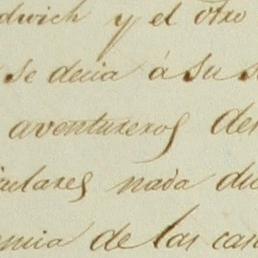 dwich y el otro
se decia á su s
aventureros de
culares nada di
encia de las cas